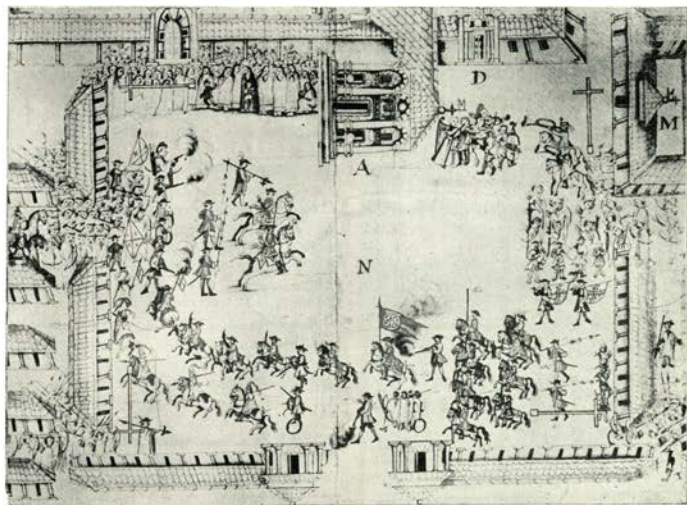 D
M
A
N